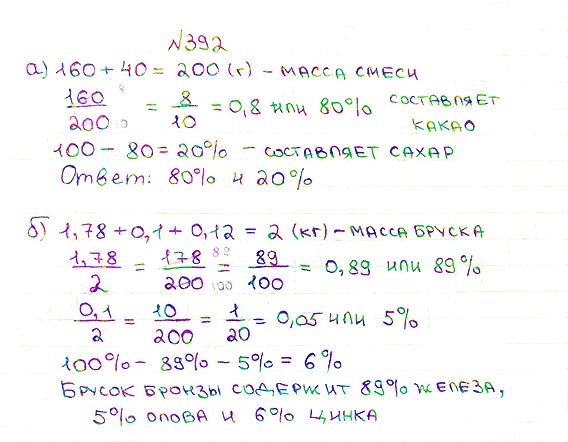 №392
а) 160 + 40 = 200 (г) – МАССА СМЕСИ
160/200 = 8/10 = 0,8 или 80% СОСТАВЛЯЕТ
КАКАО
100 – 80 = 20% – СОСТАВЛЯЕТ САХАР
Ответ: 80% и 20%
б) 1,78 + 0,1 + 0,12 = 2 (кг) – МАССА БРУСКА
1,78/2 = 178/200 = 89/100 = 0,89 ИЛИ 89%
0,1/2 = 10/200 = 1/20 = 0,05 ИЛИ 5%
100% – 89% – 5% = 6%
БРУСОК БРОНЗЫ СОДЕРЖИТ 89% ЖЕЛЕЗА,
5% ОЛОВА И 6% ЦИНКА